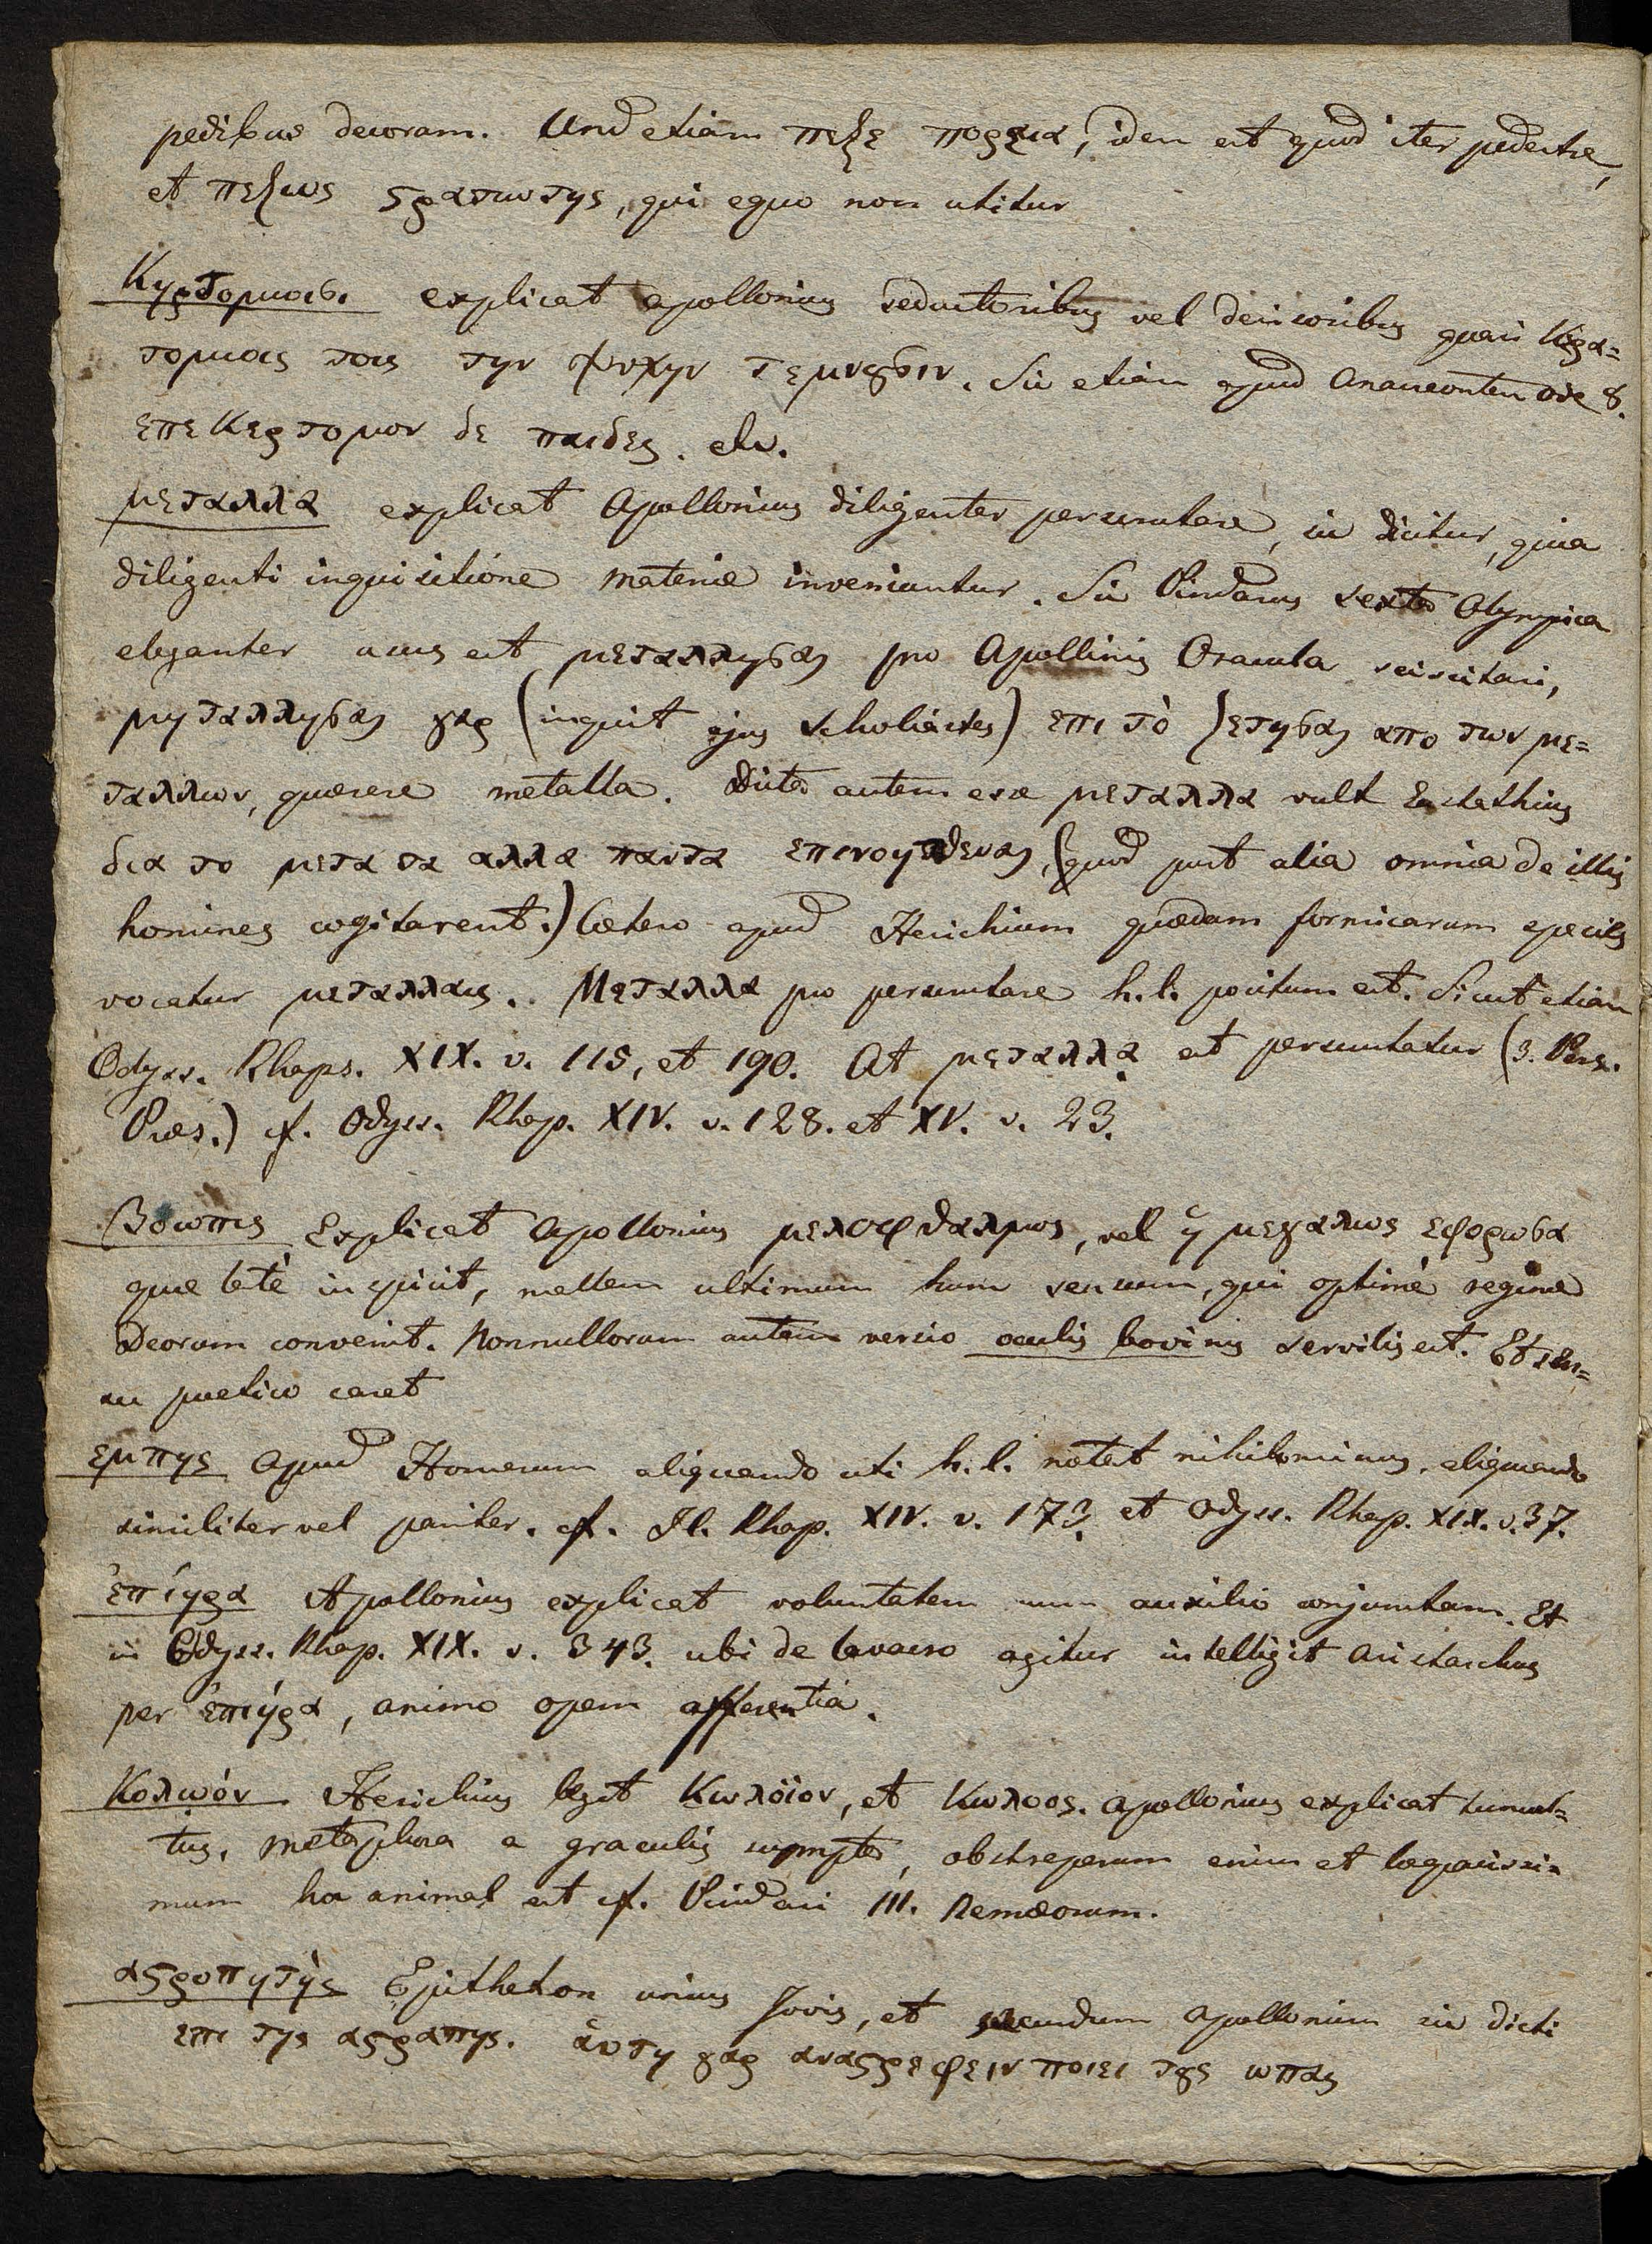 pedibus decoram. Und etiam πεζε πορεια, idem est quod iter pedestre,
et πεζως ϛρατιωτης, qui equo non utitur
Κηρτομιοισι explicat Apollonius seductoribus vel derisoribus quasi Κηρα=
τομιοις τοις την ψυχην τεμνȣσιν. Sic etiam apud Anacreontem Ode 8.
επεκερτομον δε παιδες. etc.
μεταλλα explicat Apollonius diligenter perscrutare, sic dicitur, quia
diligenti inquisitione materiæ inveniantur. Sic Pindarus sexta Olympica
eleganter usus est μεταλλησαι pro Apollinis Oracula sciscitari,
μηταλλησαι γαρ (inquit ejus Scholiastes) επι τὸ ζετησαι απο των με=
ταλλων, quærere metalla. Dicta autem esse μεταλλα vult Eustathius
δια το μετα τα αλλα παντα επινοηθεναι, (quod post alia omnia de illis
homines cogitarent.) Cætero apud Hesichium quædam formicarum species
vocatur μεταλλαις. Μεταλλα pro perscrutare h. l. positum est. Sicut etiam
Odyss. Rhaps. XIX. v. 115, et 190. At μεταλλᾳ est perscrutatur (3. Pers.
Præs.) cf. Odyss. Rhap. XIV. v. 128. et XV. v. 23.
Βοωπις Explicat Apollonius μελοφθαλμος, vel ἡ μεγαλως εφορωσα
quæ latè inspicit, mallem ultimum hunc sensum, qui optimè reginæ
Deorum convenit. Nonnullorum autem versio oculis bovinis servilis est. Et sen=
su poetico caret
εμπης Apud Homerum aliquando uti h. l. notat nihilominus, aliquando
similiter vel pariter. cf. Il. Rhap. XIV. v. 173. et Odyss. Rhap. XIX. v. 37.
ἐπίηρα Apollonius explicat voluntatem cum auxilio conjunctam. Et
in Odyss. Rhap. XIX. v. 343. ubi de lavacro agitur intelligit Aristarchus
per ἐπιήρα, animo opem afferentia.
Κολωόν Hesichius legit Κωλόϊον, et Κωλοος. Apollonius explicat tumul=
tus, metaphora a graculis sumpta, obstreperum enim et loquacissi=
mum hoc animal est cf. Pindari III. Nemæorum.
αϛεροπητὴς Epitheton unius Jovis, et secundum Apollonium sic dicti
επι της αϛραπης. ἀυτη γαρ αναϛρεφειν ποιει τȣς ωπας